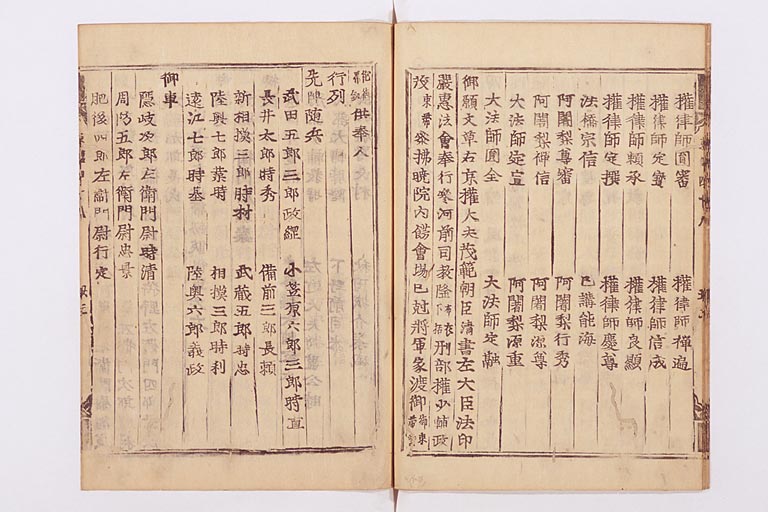 權律師圓審 權律師禪遍
權律師定寳 權律師信成
權律師頼承 權律師良顯
權律師定撰 權律師慶尊
法橋宗信 已講能海
阿闍梨尊審 阿闍梨行秀
阿闍梨禅信 阿闍梨源尊
大法師定宣 阿闍梨源重
大法師圓全 大法師定融
御願文草右京權大夫茂範朝臣清書左大臣法印
嚴惠法會奉行 河前司教隆 布衣 下括 刑部權少輔政
茂 束帶 拂暁院内餝會場已尅將軍家渡御 御束帶
供奉人
行列
先陣隨兵
武田五郎三郎政綱 小笠原六郎三郎時直
長井太郎時秀 備前三郎長頼
新相摸三郎時村 武藏五郎時忠
陸奥七郎業時 相摸三郎時利
遠江七郎時基 陸奥六郎義政
御車
隱岐次郎左衛門尉時清
周防五郎左衛門尉忠景
肥後四郎左衛門尉行定